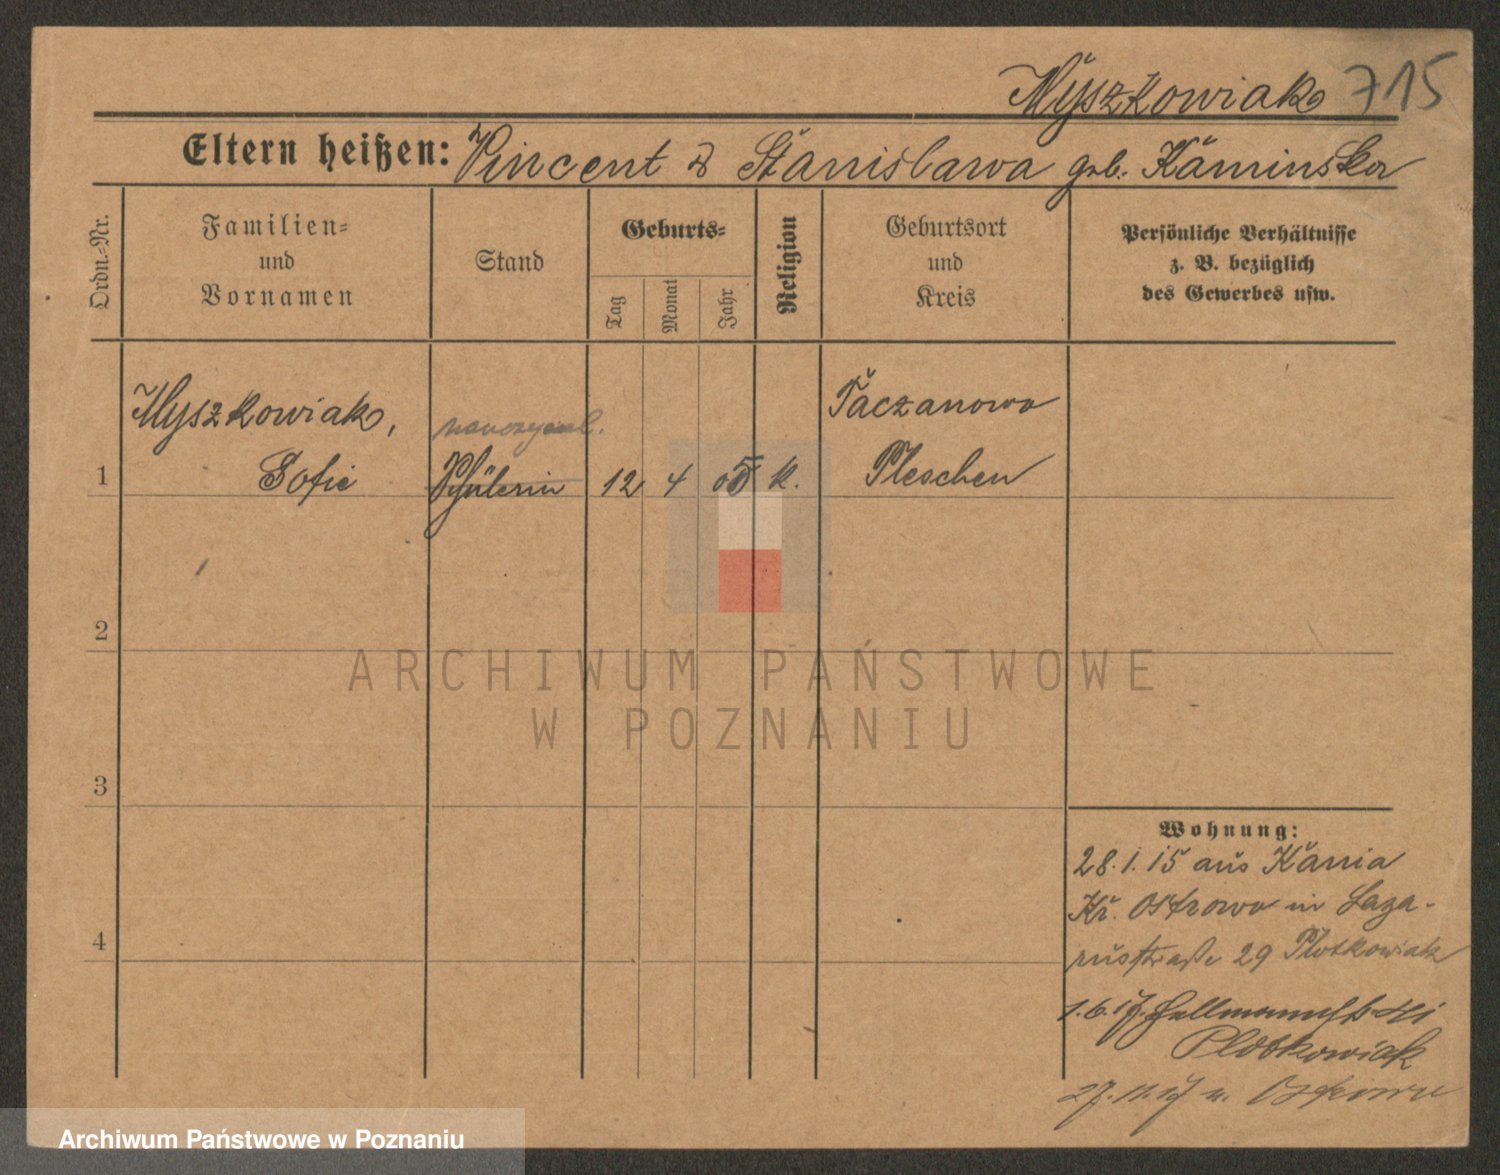 Myszkowiak 715
Eltern heißen: Vincent & Stanislawa geb. Kaminska
Ordn.-Nr.
Familien-
und
Vornamen
Stand
Geburts-
Tag
Monat
Jahr
Religion
Geburtsort
und
Kreis
Persönliche Verhältnisse
z. B. bezüglich
des Gewerbes usw.
Myszkowiak,
1 Sofie Schülerin 12 4 05 k.
Taczanowo
Pleschen
2
3
4
Wohnung:
28.1.15 aus Kania
Kr. Ostrowo in Laza-
russtraße 29 Plotkowiak
1.6.17.
Plotkowiak
27.11.17 n. Ostrowo
ARCHIWUM PAŃSTWOWE
W POZNANIU
Archiwum Państwowe w Poznaniu